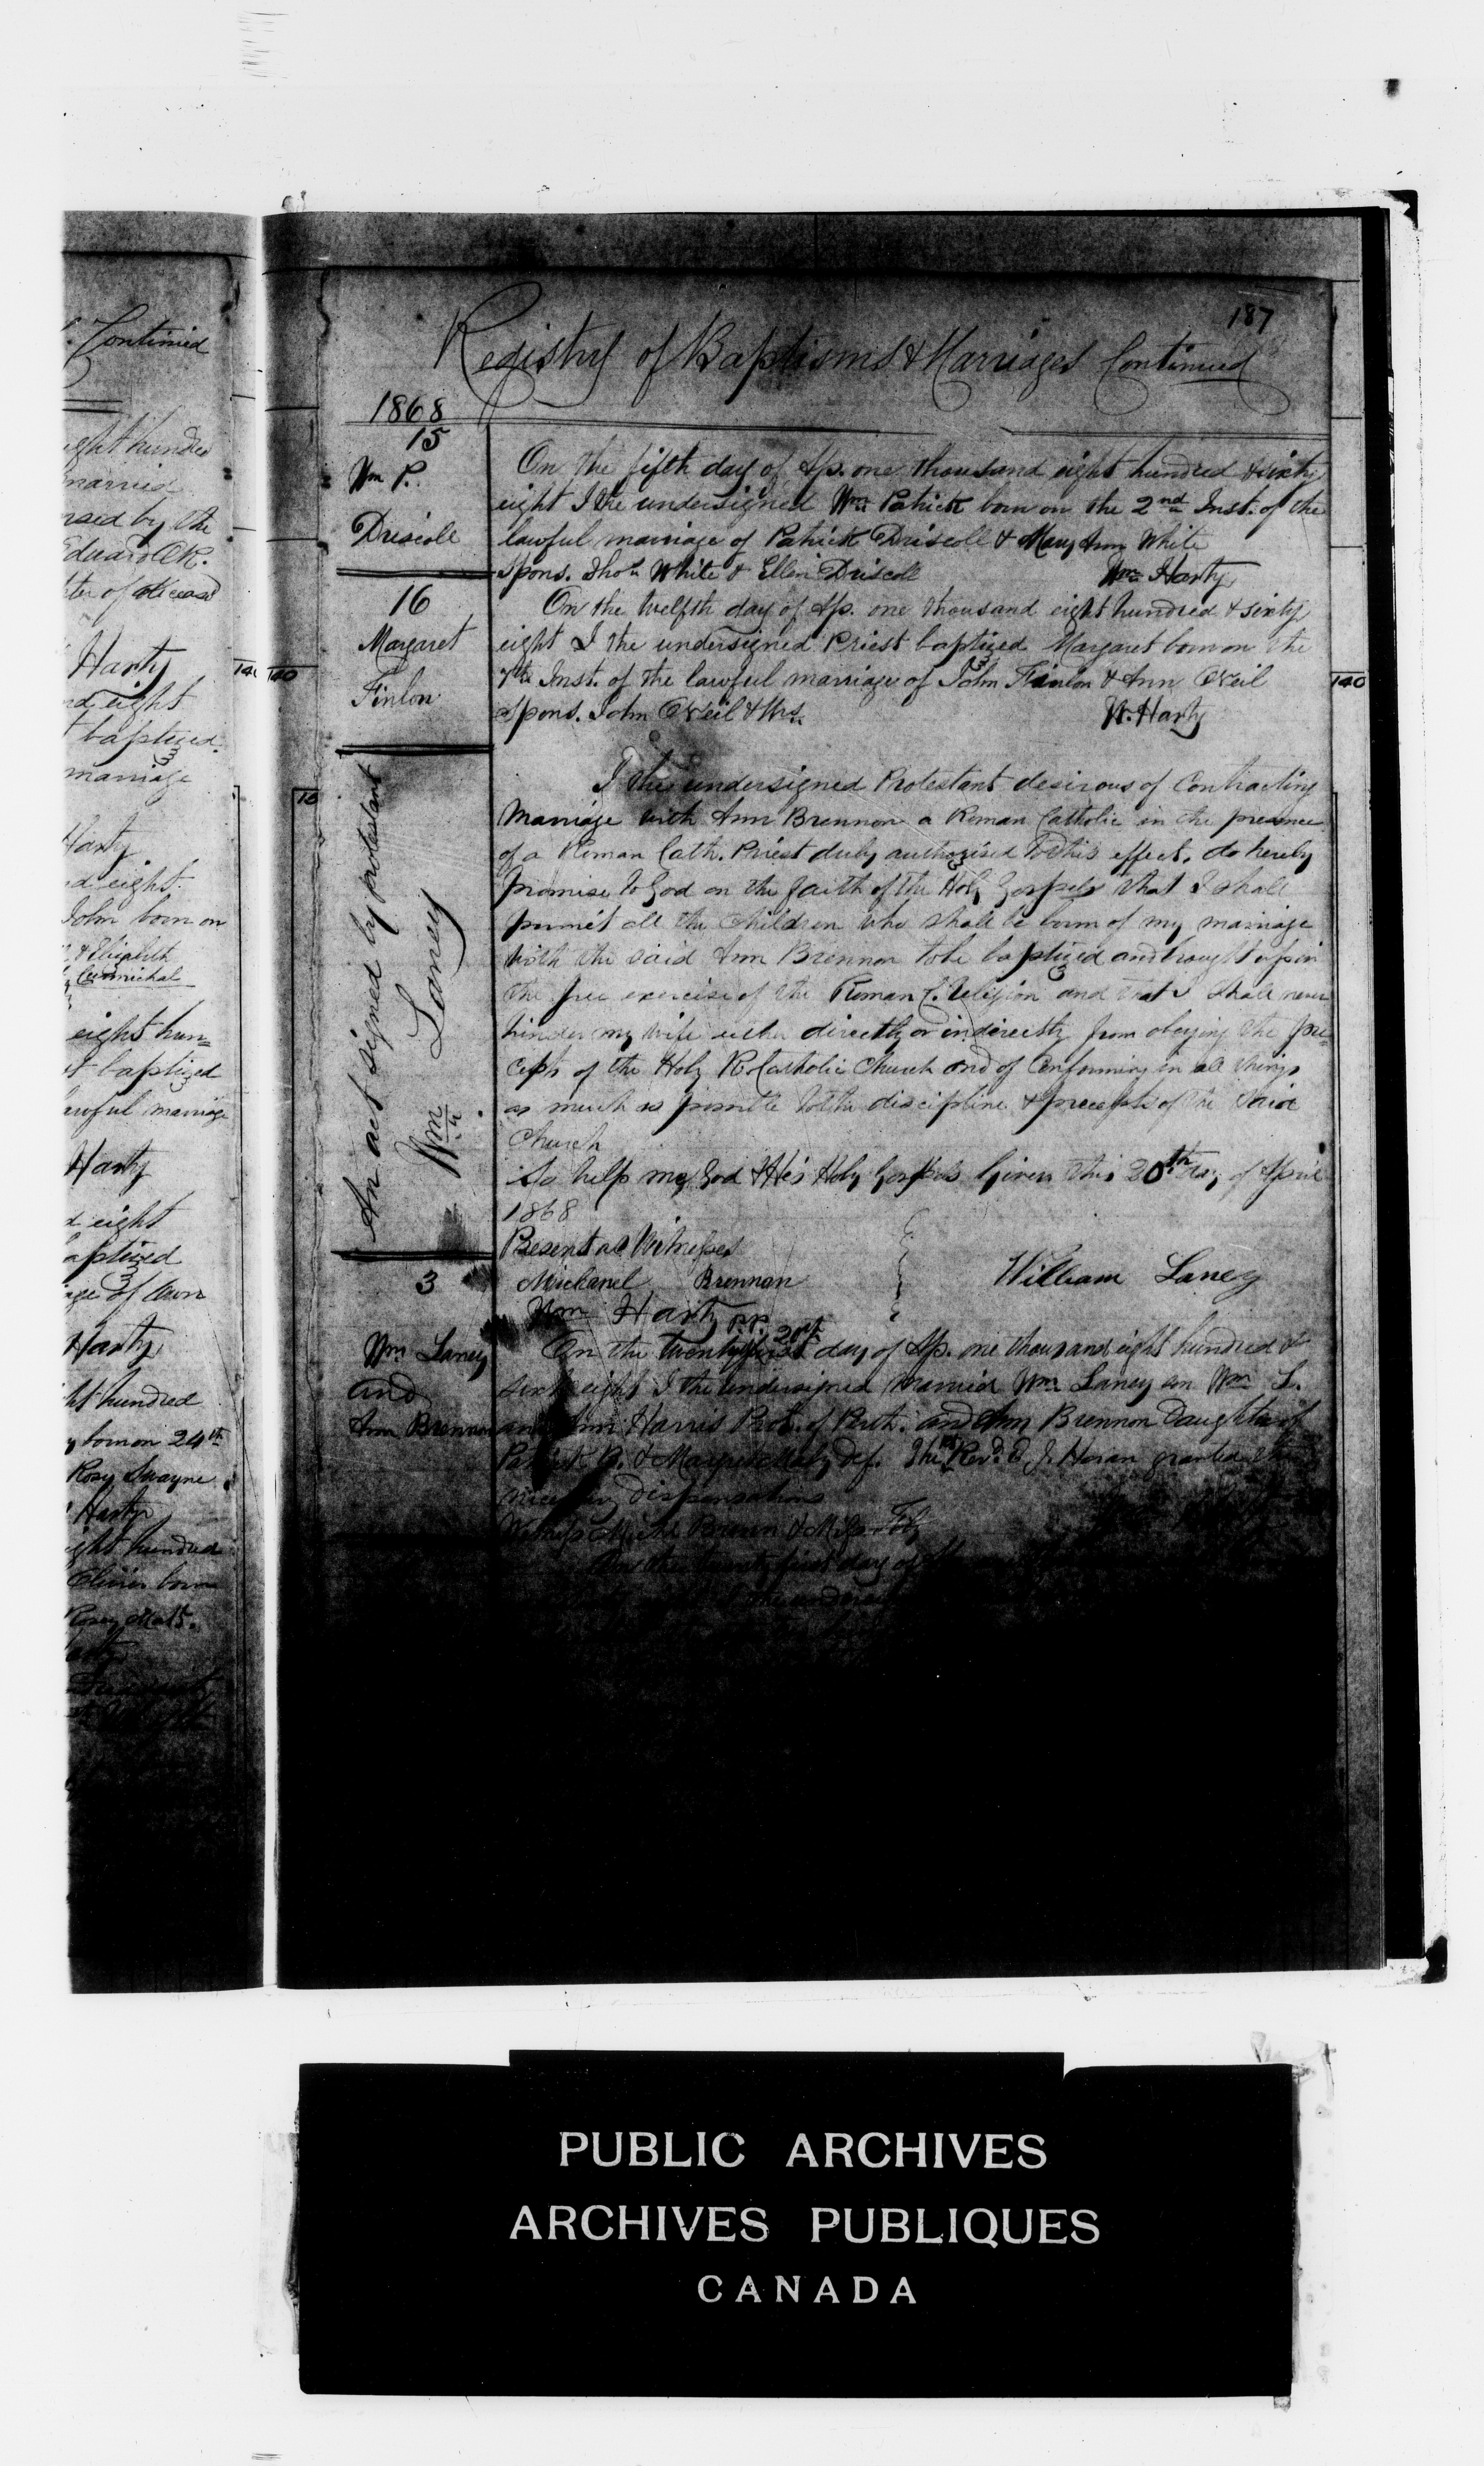 Continied
ight hundred
married
by the
Edward OK.
ter of deceased
Harty
nd eight
baptized
marriage
Harty
nd eight.
John born on
& Elizabeth
Carmichal
eight hun=
baptized
awful marriage
Harty
d eight
aptized
age of Owen
Harty
ht hundred
born on 24th
Rosy Swayne
Harty
ght hundred
born
Rosy
187
Registry of Baptisms & Marriages Continued
1868
15
Wm P.
Driscole
On the fifth day of Ap. one thousand eight hundred & sixty
eight I the undersigned Wm Patrick born on the 2nd Inst. of the
lawful marriage of Patrick Driscoll & Mary Ann White
Spons. Thos White & Ellen Driscoll Wm Harty
16
Margaret
Finlon
On the twelfth day of Ap. one thousand eight hundred & sixty
eight I the undersigned Priest baptized Margaret born on the
7th Inst. of the lawful marriage of John Finlon & Ann O'Neil
Spons. John O'Neil & Mrs. W. Harty
140 140
140
An act signed by protestant
Wm Laney
I the undersigned Protestant desirous of Contracting
Marriage with Ann Brennon a Roman Catholic in the presence
of a Roman Cath. Priest duly authorised to this effect, do hereby
promise to God on the faith of the Holy Gospels that I shall
permit all the Children who shall be born of my marriage
with the said Ann Brennon to be baptized and brought up in
the free exercise of the Roman C. Religion and that I shall never
hinder my wife either directly or indirectly from obeying the pre=
cepts of the Holy R. Catholic Church and of Conforming in all things
as much as possible to the discipline & precepts of the said
Church
So help me God & His Holy Gospels Given this 20th day of April
1868
Present as Witnesses
Michael Brennan William Laney
Wm Harty P.P.
3
Wm Laney
and
Ann Brennan
20th
On the twenty first day of Ap. one thousand eight hundred &
sixty eight I the undersigned married Wm Laney son Wm L.
and Ann Harris Prot. of Perth. and Ann Brennon Daughter of
Patrick B. & Margret of. The Revd. J. Horan granted the
necessary dispensations
Witness Michl &
On the twenty first day of
I the undersigned
PUBLIC ARCHIVES
ARCHIVES PUBLIQUES
CANADA